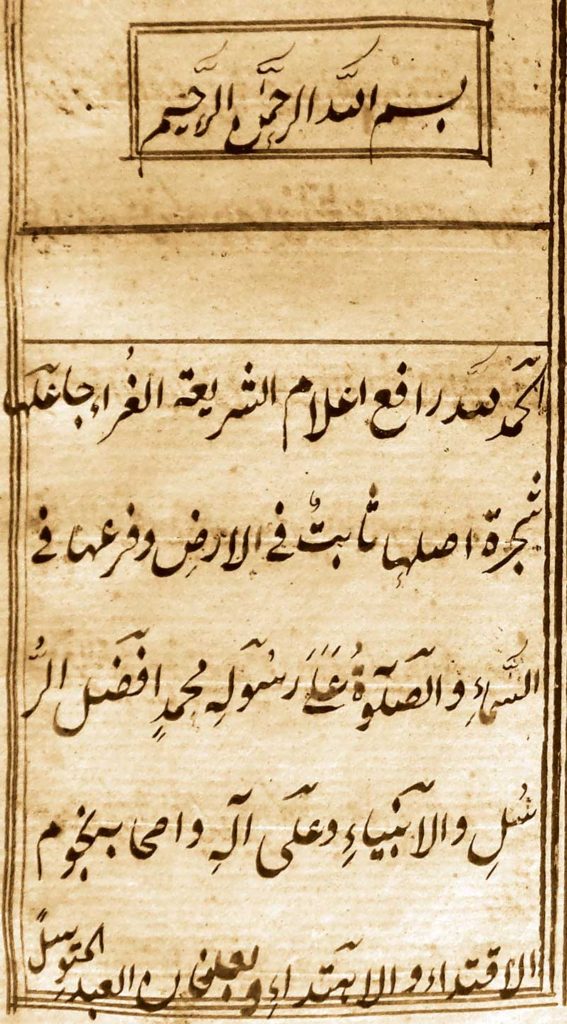 بسم الله الرحمن الرحيم
الحمد لله رافع اعلام الشريعة الغراء جاعلها
شجرة اصلها ثابتٌ في الارضِ وفرعها في
السَّماءِ والصَّلوٰةُ عَلَىٰ رَسُولِهِ محمدٍ افضَلِ الرُّ
سُلِ والانبياءِ وعَلَى آلِهِ واصحابه نجوم
الاقتداء والاهتداءِ وبعد فان العبد المتوسل